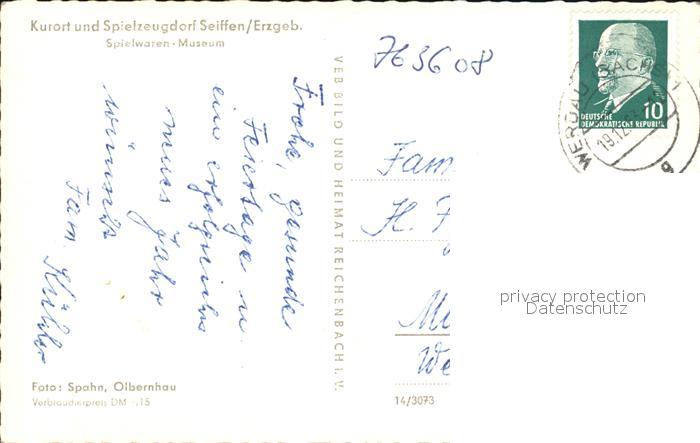 Kurort und Spielzeugdorf Seiffen/Erzgeb.
Spielwaren-Museum
763608
Frohe, gesunde
Feiertage u.
ein erfolgreiches
neues Jahr
wünscht
Fam. Köhler
VEB BILD UND HEIMAT REICHENBACH I. V.
DEUTSCHE
DEMOKRATISCHE REPUBLIK
10
WERDAU (SACHS) 1
19.12.
Fam
H.
We
privacy protection
Datenschutz
Foto: Spahn, Olbernhau
Verbraucherpreis DM -.15
14/3073